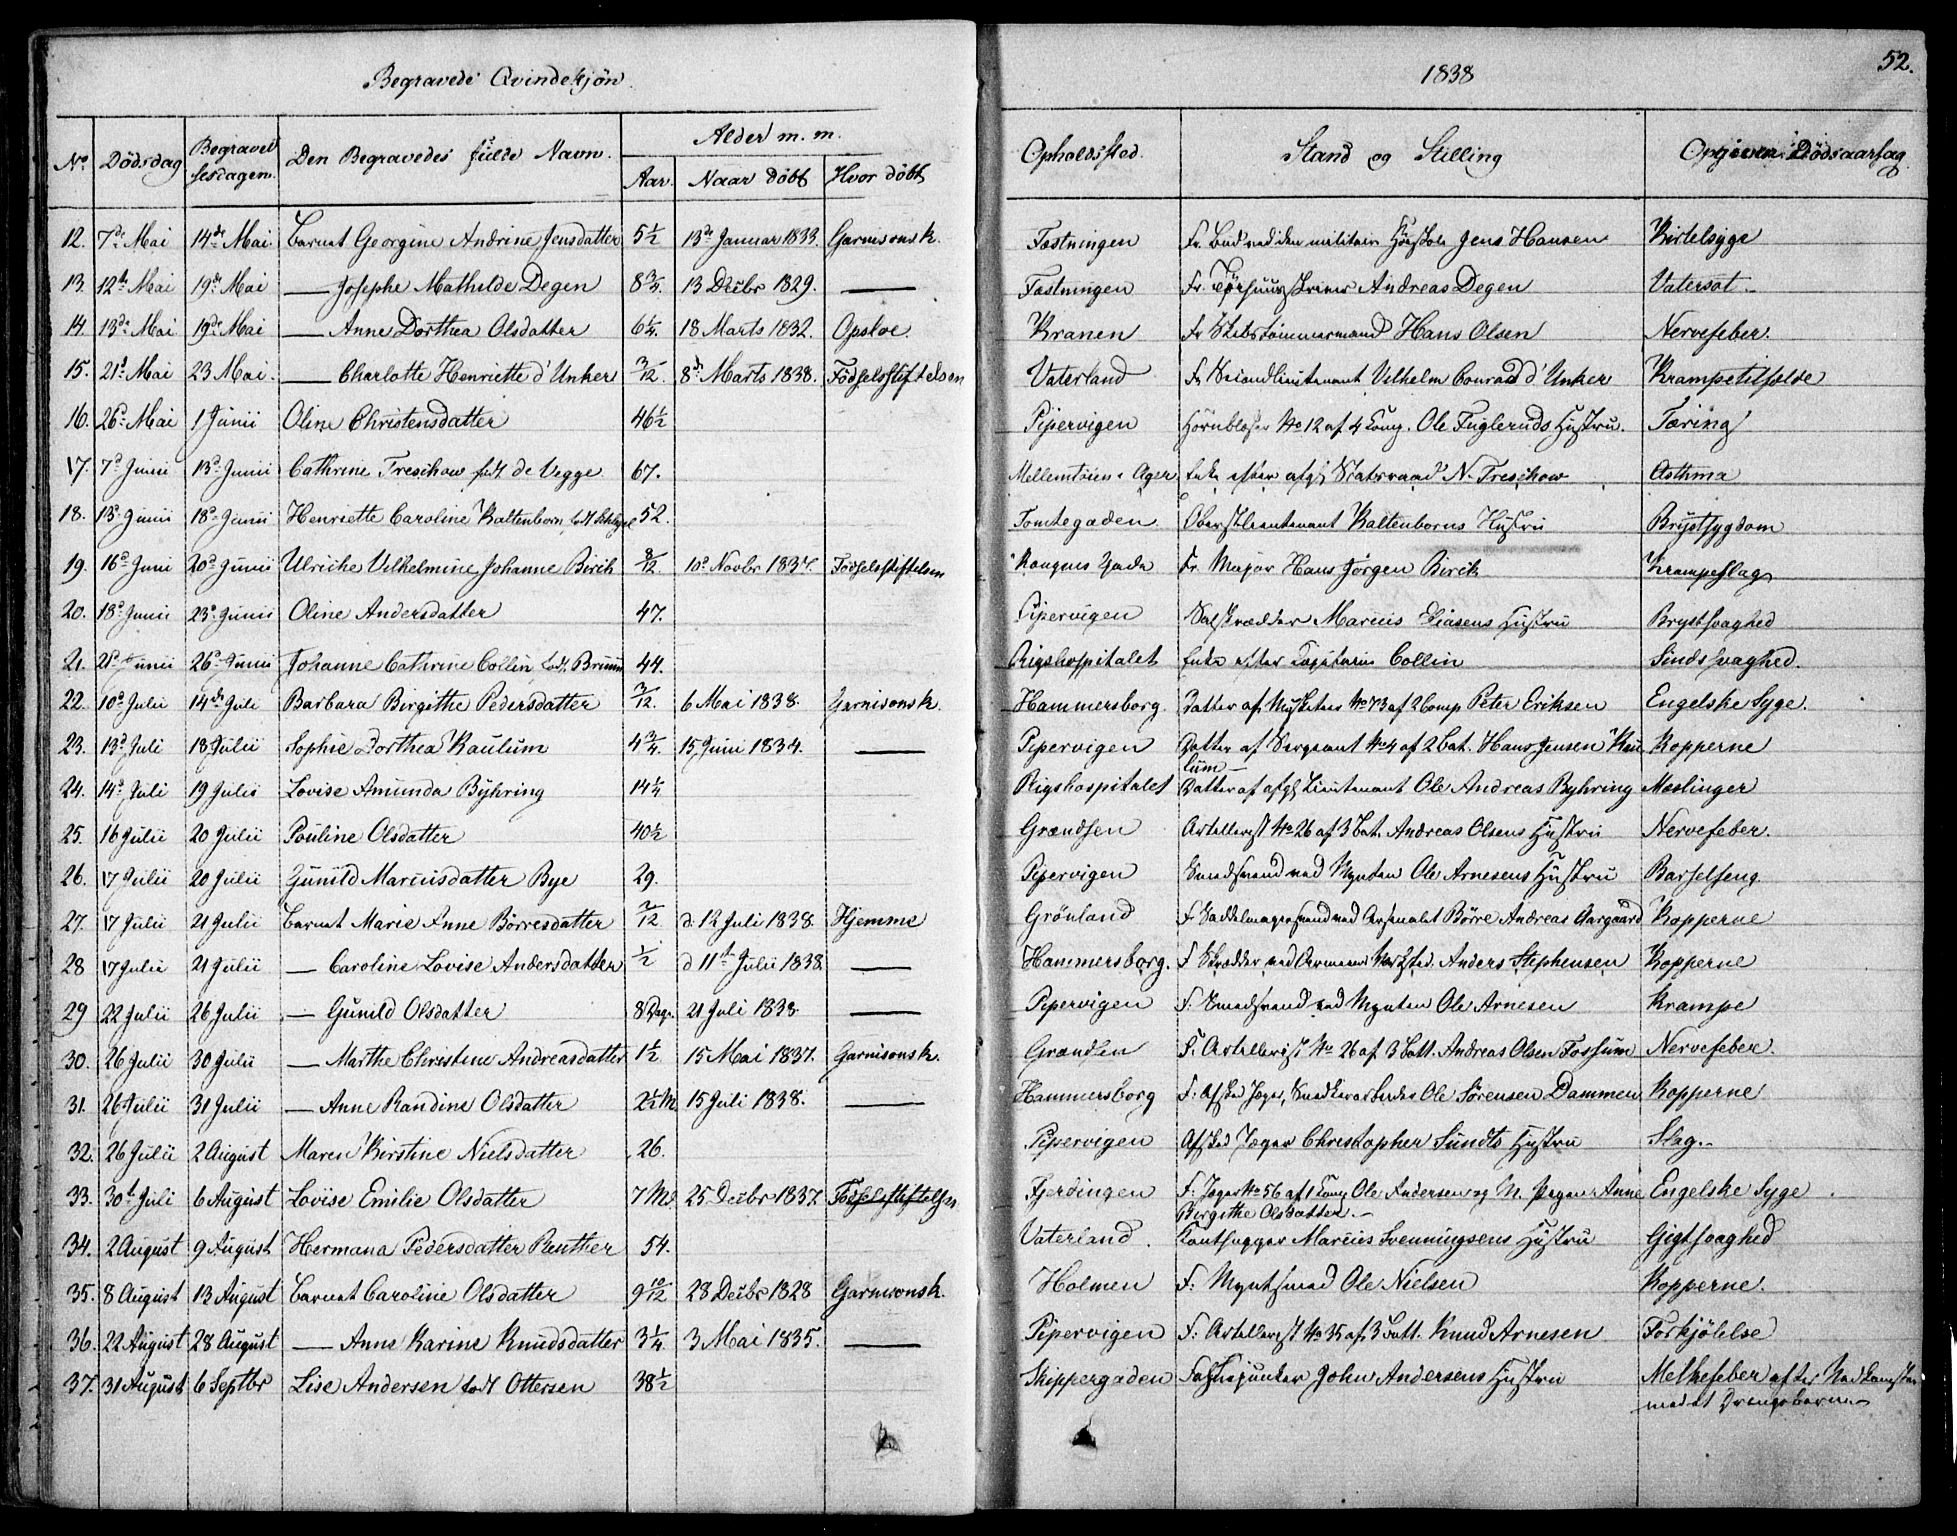 52.
Begravede Qvindekjøn.
1838
No. Dödsdag Begravelsesdagen. Den Begravedes fulde Navn. Alder m. m. Aar. Naar döbt Hvor döbt Opholdssted. Stand og Stilling Opgiven Dödsaarsag
12. 7de Mai 14de Mai. Barnet Georgine Andrine Jensdatter 5½ 13de Januar 1833. Garnisonsk. Fæstningen Fr. Bud ved den militair Høiskole Jens Hansen Kirtelsyge
13. 12te Mai 19de Mai — Josephe Mathilde Degen 8¾. 13 Decbr 1829. — Fæstningen Fr. Andreas Degen Vatersot.
14. 13de Mai 19de Mai — Anne Dorthea Olsdatter 6¼. 18 Marts 1832. Opsloe. Kranen Fr Skibstømmermand Hans Olsen Nervefeber.
15. 21d Mai 23 Mai. — Charlotte Henriette d'Unker 3/12. 8d Marts 1838. Födselsstiftelsen Vaterland Fr Secondlieutenant Vilhelm Conrad d'Unker Krampetilfælde
16. 26d Mai 1 Junii Oline Christensdatter 46½ Pipervigen Hornblæser No 12 af 4 Comp. Ole Fugleruds Hustru. Tæring
17. 7d Junii 13d Junii Cathrine Treschow født de Vegge 67. Mellemtøien Ager Enke efter afg. Statsraad N. Treschow Asthma
18. 13d Junii 18d Junii Henriette Caroline Kaltenborn født 52. Tomtegaden Oberstlieutenant Kaltenborns Hustru Brystsygdom
19. 16d Juni 20d Junii Ulrike Vilhelmine Johanne Birch 8/12. 10d Novbr 1837. Födselsstiftelsen Kongens Gade Fr. Major Hans Jörgen Birch Krampeslag
20. 18d Junii 23d Junii Oline Andersdatter 47. Pipervigen Salskrædder Marius Eliasens Hustru Brystsvaghed
21. 21d Junii 26d Junii Johanne Cathrine Collin født Bruun 44. Rigshospitalet Enke efter Capitain Collin Sindssvaghed.
22. 10d Julii 14de Juli Barbara Birgithe Pedersdatter 3/12. 6 Mai 1838. Garnisonsk. Hammersborg. Datter af Musketeer No 73 af 2 Comp Peter Eriksen Engelske Syge.
23. 13d Juli 18 Julii Sophie Dorthea Kaulum 4¾. 15 Juni 1834. — Pipervigen Datter af Sergeant No 4 af 2 Bat. Hans Jensen Kau Kopperne
lum—
24. 14d Juli 19 Julii Lovise Amunda Byhring 14¼ Rigshospitalet Datter af afg. Lieutenant Ole Andreas Byhring Mæslinger
25. 16 Julii 20 Julii Pouline Olsdatter 40½ Grændsen Artillerist No 26 af 3 Bat. Andreas Olsens Hustru Nervefeber.
26. 17 Julii 20 Julii Gunild Mariusdatter Bye 29. Pipervigen Smedsvend ved Mynten Ole Arnesens Hustru Barselseng
27. 17 Julii 21 Julii Barnet Marie Anne Börresdatter d. 12 Juli 1838. Hjemme Grönland F. Sadelmagersvend ved Arsenalet Börre Andreas Aargaard Kopperne
28 17 Julii 21 Julii — Caroline Lovise Andersdatter ½ d 11te Julii 1838. — Hammersborg. F Skrædder ved Anders Stephensen Kopperne
29 22 Julii 26 Julii — Gunild Olsdatter 8 Dage. 21 Juli 1838. — Pipervigen F. Smedsvend ved Mynten Ole Arnesen Krampe
30. 26 Julii 30 Julii — Marthe Christine Andreasdatter 1½ 15 Mai 1837. Garnisonsk. Grændsen F. Artillerist No 26 af 3 Batt. Andreas Olsen Fossum Nervefeber.
31. 26 Julii 31 Julii — Anne Randine Olsdatter 2½ M. 15 Juli 1838. — Hammersborg F. Afsked Jæger, Snedkerarbeider Ole Sørensen Dammen Kopperne
32. 26 Julii 2 August Maren Kirstine Nielsdatter 26. Pipervigen Afsked Jæger Christopher Sundts Hustru Slag.
33. 30d Juli 6 August Lovise Emilie Olsdatter 7 Md. 25 Decbr 1837. Födselsstiftelsen Fjerdingen F. Jæger No 56 af 1 Comp Ole Andersen og M. Pigen Anne Engelske Syge
Birgithe Olsdatter.—
34. 2 August 9 August Hermana Pedersdatter Reuther 54. Vaterland. Marius Svenningsens Hustru Gigtsvaghed
35. 8 August 13 August Barnet Caroline Olsdatter 9 10/12 28 Decbr 1828 Garnisonsk. Holmen F. Myntsmed Ole Nielsen Kopperne.
36. 22 August 28 August — Anne Karine Knudsdatter 3¼ 3 Mai 1835. — Pipervigen F. Artillerist No 35 af 3 Batt. Knud Arnesen Forkjölelse
37. 31 August 6 Septbr Lise Andersen født Ottersen 38½ Skippergaden Fahnejunker John Andersens Hustru Melkefeber efter Nedkomsten
med et Drengebarn.